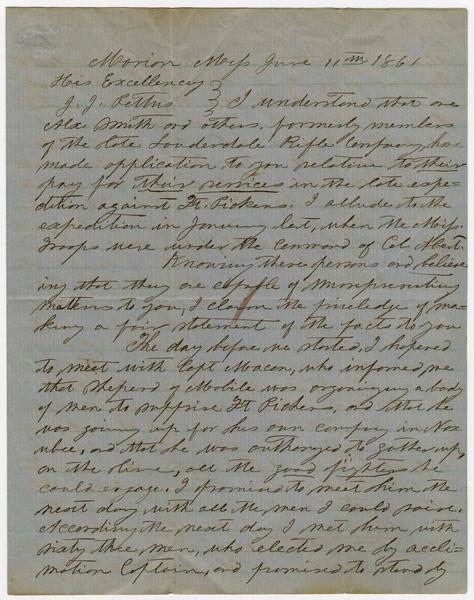 Marion Miss June 11th 1861
His Excellency
J. J. Pettus } I understand that one
Alx Smith and others, formerly members
of the late Lauderdale Rifle Company, have
made application to you relative to their
pay for their services in the late expe=
dition against Ft. Pickens. I allude to the
expedition in January last, when the Miss.
Troops were under the command of Col
Knowing these persons and believe
ing that they are capable of misrepresenting
matters to you, I claim the priviledge of ma=
king a fair statement of the facts to you
The day before we started, I hapened
to meet with Capt Macon, who informed me
that Sheperd of Mobile was organizing a body
of men to surprise Ft Pickens, and that he
was going up for his own company in Nox
ubee, and that he was authorized to gather up,
on the line, all the good fighters he
could engage. I promised to meet him the
next day with all the men I could raise.
According the next day I met him with
sixty three men, who elected me by accli=
mation Captain, and promised to stand by